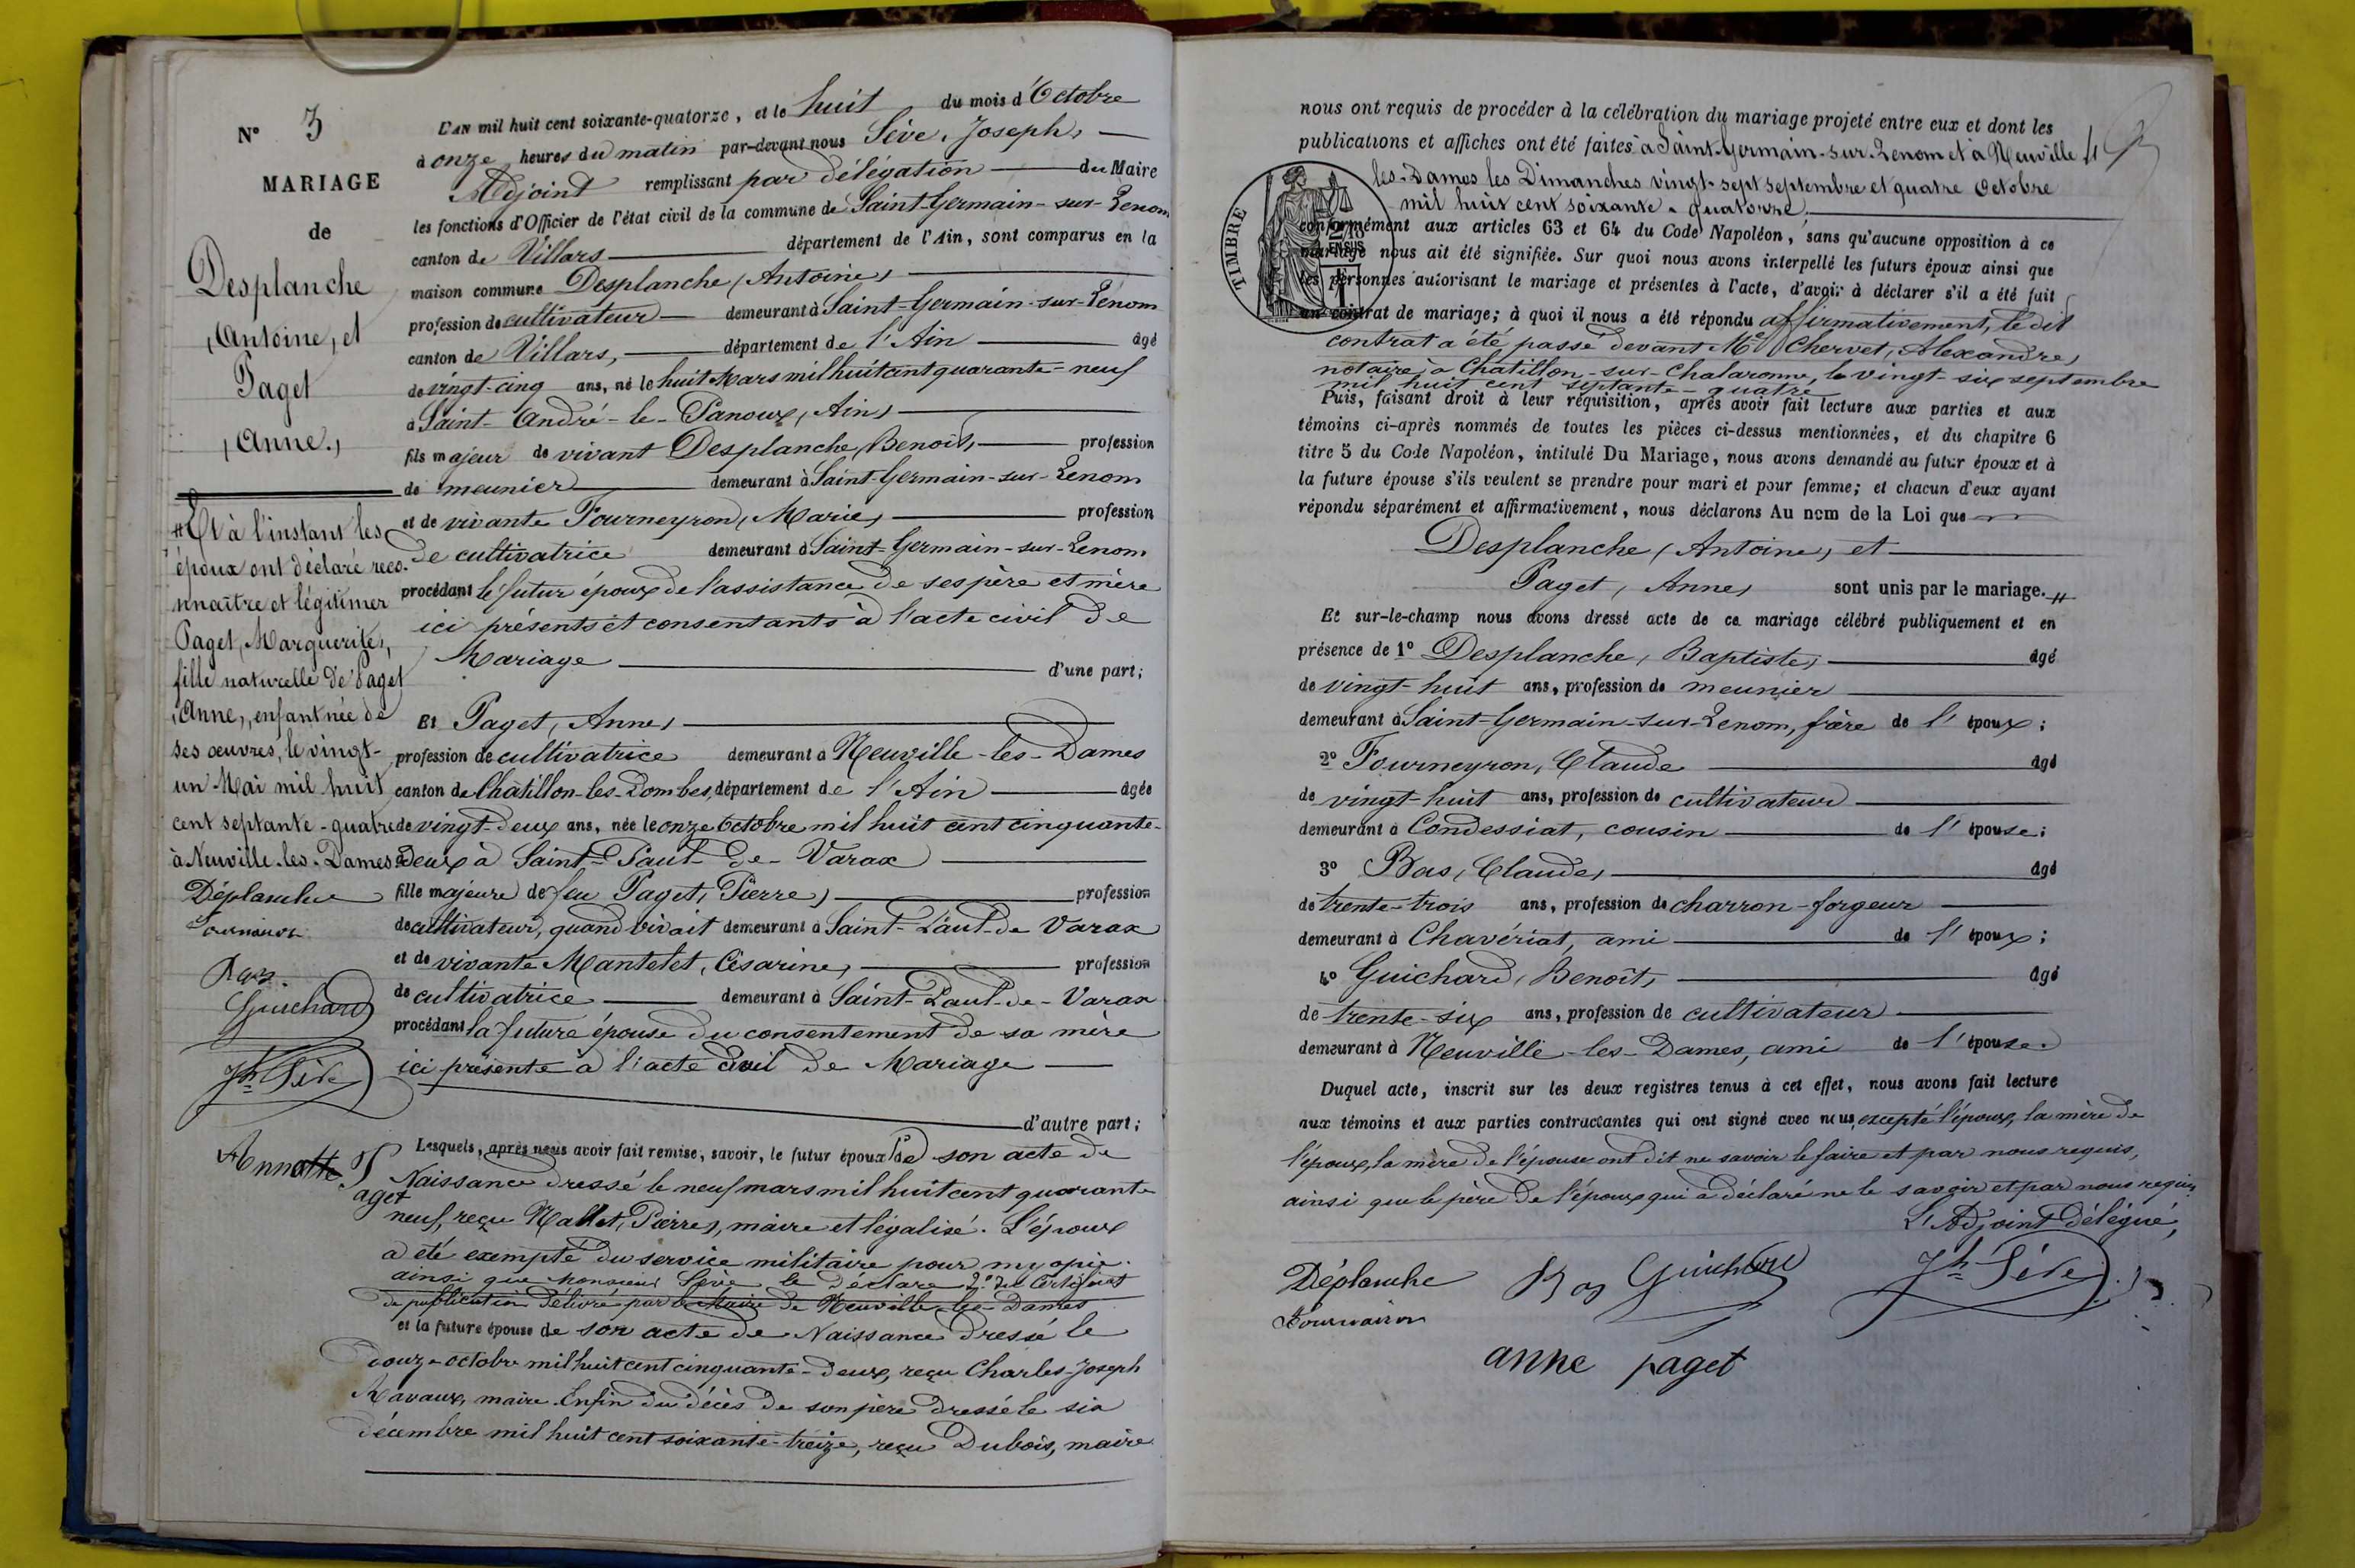 N° 3
MARIAGE
de
Desplanche
(Antoine) et
Paget
(Anne.)
#Et à l'instant les
époux ont déclaré reco-
nnaître et légitimer
Paget (Marguerite),
fille naturelle de Paget
(Anne), enfant née de
ses œuvres, le vingt-
un Mai mil huit
cent septante-quatre
à Neuville-les-Dames
Déplanche
Bas
Guichard
Jh Sève
Annatte P
aget
L'AN mil huit cent soixante-quatorze, et le huit du mois d'Octobre
à onze heures du matin par-devant nous Sève, Joseph,
Adjoint remplissant par délégation du Maire
les fonctions d'Officier de l'état civil de la commune de Saint-Germain-sur-Renom
canton de Villars département de l'Ain, sont comparus en la
maison commune Desplanche (Antoine)
profession de cultivateur demeurant à Saint-Germain-sur-Renom
canton de Villars, département de l'Ain âgé
de vingt-cinq ans, né le huit Mars mil huit cent quarante-neuf
à Saint-André-le-Panoux (Ain)
fils majeur de vivant Desplanche, Benoit, profession
de meunier demeurant à Saint-Germain-sur-Renom
et de vivante Fourneyron (Marie) profession
de cultivatrice demeurant à Saint-Germain-sur-Renom
procédant le futur époux de l'assistance de ses père et mère
ici présents et consentants à l'acte civil de
Mariage d'une part;
Et Paget (Anne)
profession de cultivatrice demeurant à Neuville-les-Dames
canton de Châtillon-les-Dombes, département de l'Ain âgée
de vingt-deux ans, née le onze Octobre mil huit cent cinquante-
deux à Saint-Paul-de-Varax
fille majeure de feu Paget (Pierre) profession
de cultivateur, quand vivait demeurant à Saint-Paul-de Varax
et de vivante Mantelet, Césarine, profession
de cultivatrice demeurant à Saint-Paul-de-Varax
procédant la future épouse du consentement de sa mère
ici présente à l'acte Civil de Mariage
d'autre part;
Lesquels, après nous avoir fait remise, savoir, le futur époux 1° de son acte de
Naissance dressé le neuf mars mil huit cent quarante
neuf, reçu Mallet, Pierre), maire et légalisé. L'époux
a été exempté du service militaire pour myopie.
ainsi que monsieur Sève le déclare 2° du Certificat
de publication délivré par le Maire de Neuville-les-Dames
et la future épouse de son acte de Naissance dressé le
douze octobre mil huit cent cinquante-deux, reçu Charles-Joseph
Ravaux, maire. Enfin du décès de son père dressé le six
décembre mil huit cent soixante-treize, reçu Dubois, maire
nous ont requis de procéder à la célébration du mariage projeté entre eux et dont les
publications et affiches ont été faites à Saint-Germain-sur-Renom et à Neuville
les-Dames les Dimanches vingt-sept septembre et quatre Octobre
mil huit cent soixante-quatorze,
TIMBRE
2/10
EN SUS
conformément aux articles 63 et 64 du Code Napoléon, sans qu'aucune opposition à ce
mariage nous ait été signifiée. Sur quoi nous avons interpellé les futurs époux ainsi que
les personnes autorisant le mariage et présentes à l'acte, d'avoir à déclarer s'il a été fait
un contrat de mariage; à quoi il nous a été répondu affirmativement, le dit
contrat a été passé devant Me Chervet, Alexandre,
notaire à Châtillon-sur-Chalaronne, le vingt-six septembre
mil huit cent septante quatre
Puis, faisant droit à leur réquisition, après avoir fait lecture aux parties et aux
témoins ci-après nommés de toutes les pièces ci-dessus mentionnées, et du chapitre 6
titre 5 du Code Napoléon, intitulé Du Mariage, nous avons demandé au futur époux et à
la future épouse s'ils veulent se prendre pour mari et pour femme; et chacun d'eux ayant
répondu séparément et affirmativement, nous déclarons Au nom de la Loi que
Desplanche (Antoine) et
Paget (Anne) sont unis par le mariage. #
Et sur-le-champ nous avons dressé acte de ce mariage célébré publiquement et en
présence de 1° Desplanche (Baptiste) âgé
de vingt-huit ans, profession de meunier
demeurant à Saint-Germain-sur-Renom, frère de l'époux;
2° Fourneyron, Claude âgé
de vingt-huit ans, profession de cultivateur
demeurant à Condessiat, cousin de l'épouse;
3° Bas, Claude, âgé
de trente-trois ans, profession de charron-forgeur
demeurant à Chavériat, ami de l'époux;
4° Guichard, Benoît, âgé
de trente-six ans, profession de cultivateur
demeurant à Neuville-les-Dames, ami de l'épouse.
Duquel acte, inscrit sur les deux registres tenus à cet effet, nous avons fait lecture
aux témoins et aux parties contractantes qui ont signé avec nous, excepté l'époux, la mère de
l'époux, la mère de l'épouse ont dit ne savoir le faire et par nous requis,
ainsi que le père de l'époux qui a déclaré ne le savoir et par nous requis
L'Adjoint délégué,
Déplanche Bas Guichard Jh Sève
anne paget